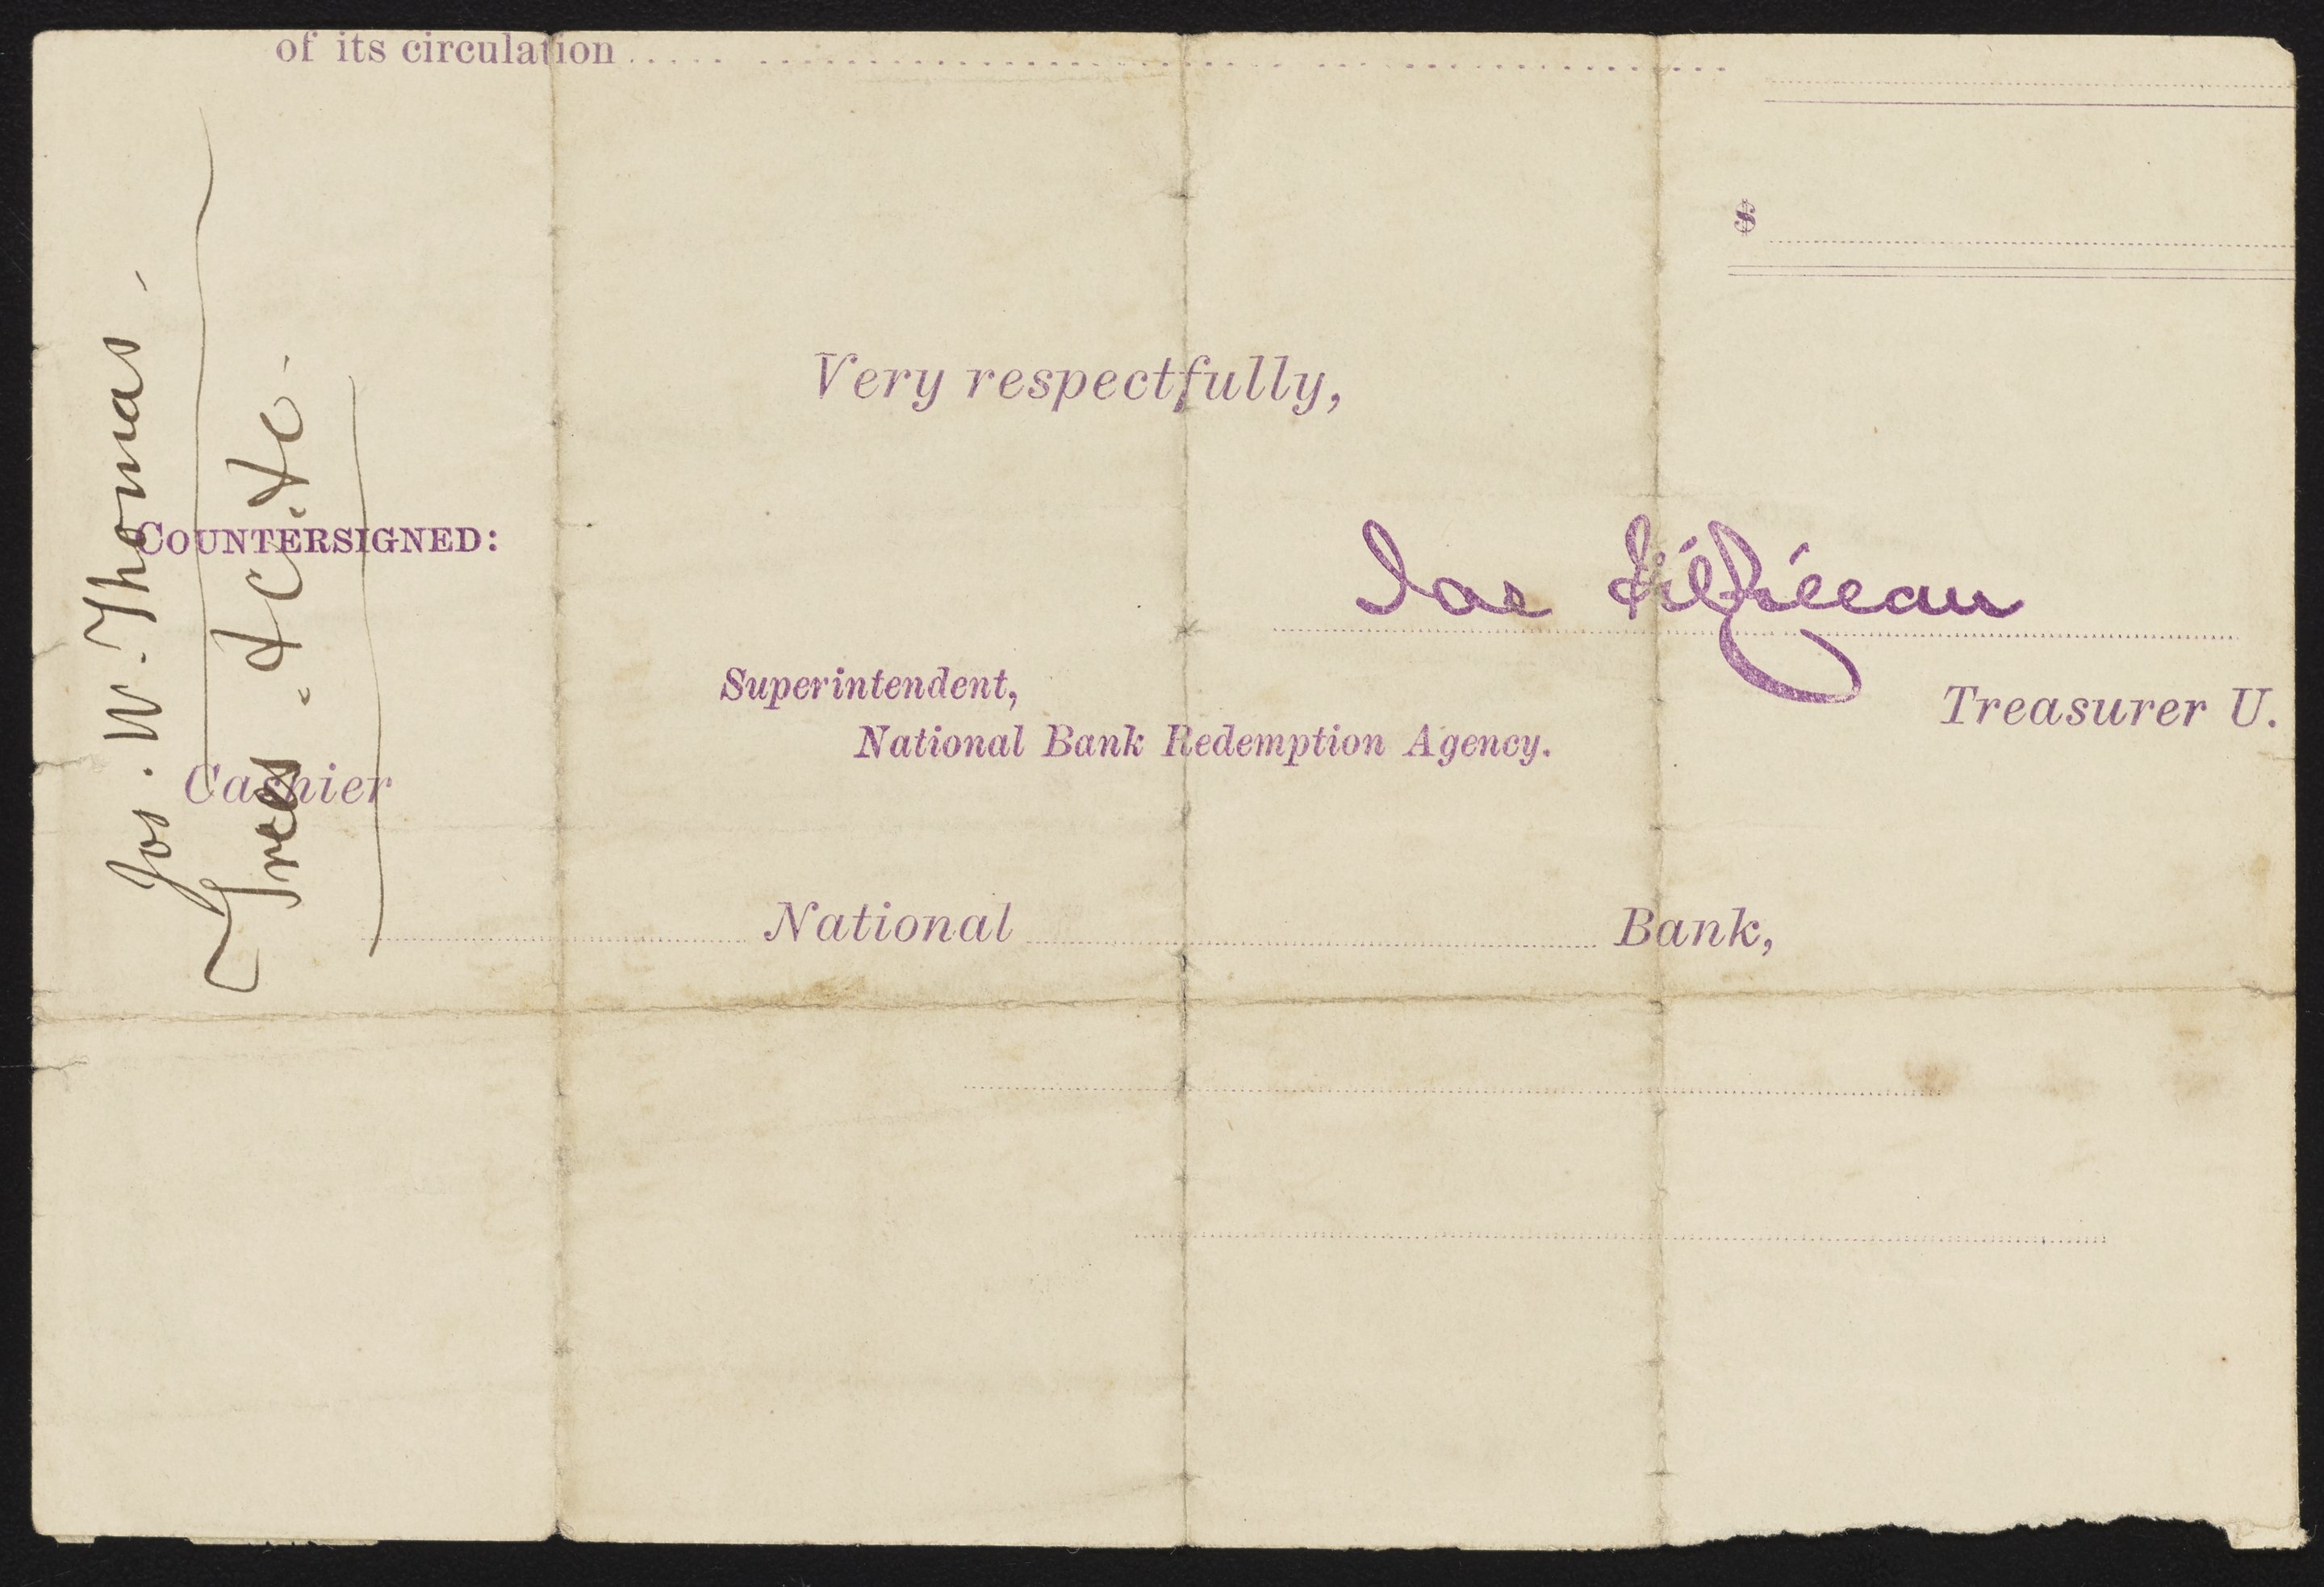 of its circulation
$
Very respectfully,
COUNTERSIGNED:
Superintendent,
National Bank Redemption Agency.
Treasurer U.
Cashier
National Bank,
Jos. W. Thomas.
Trees. &c. &c.